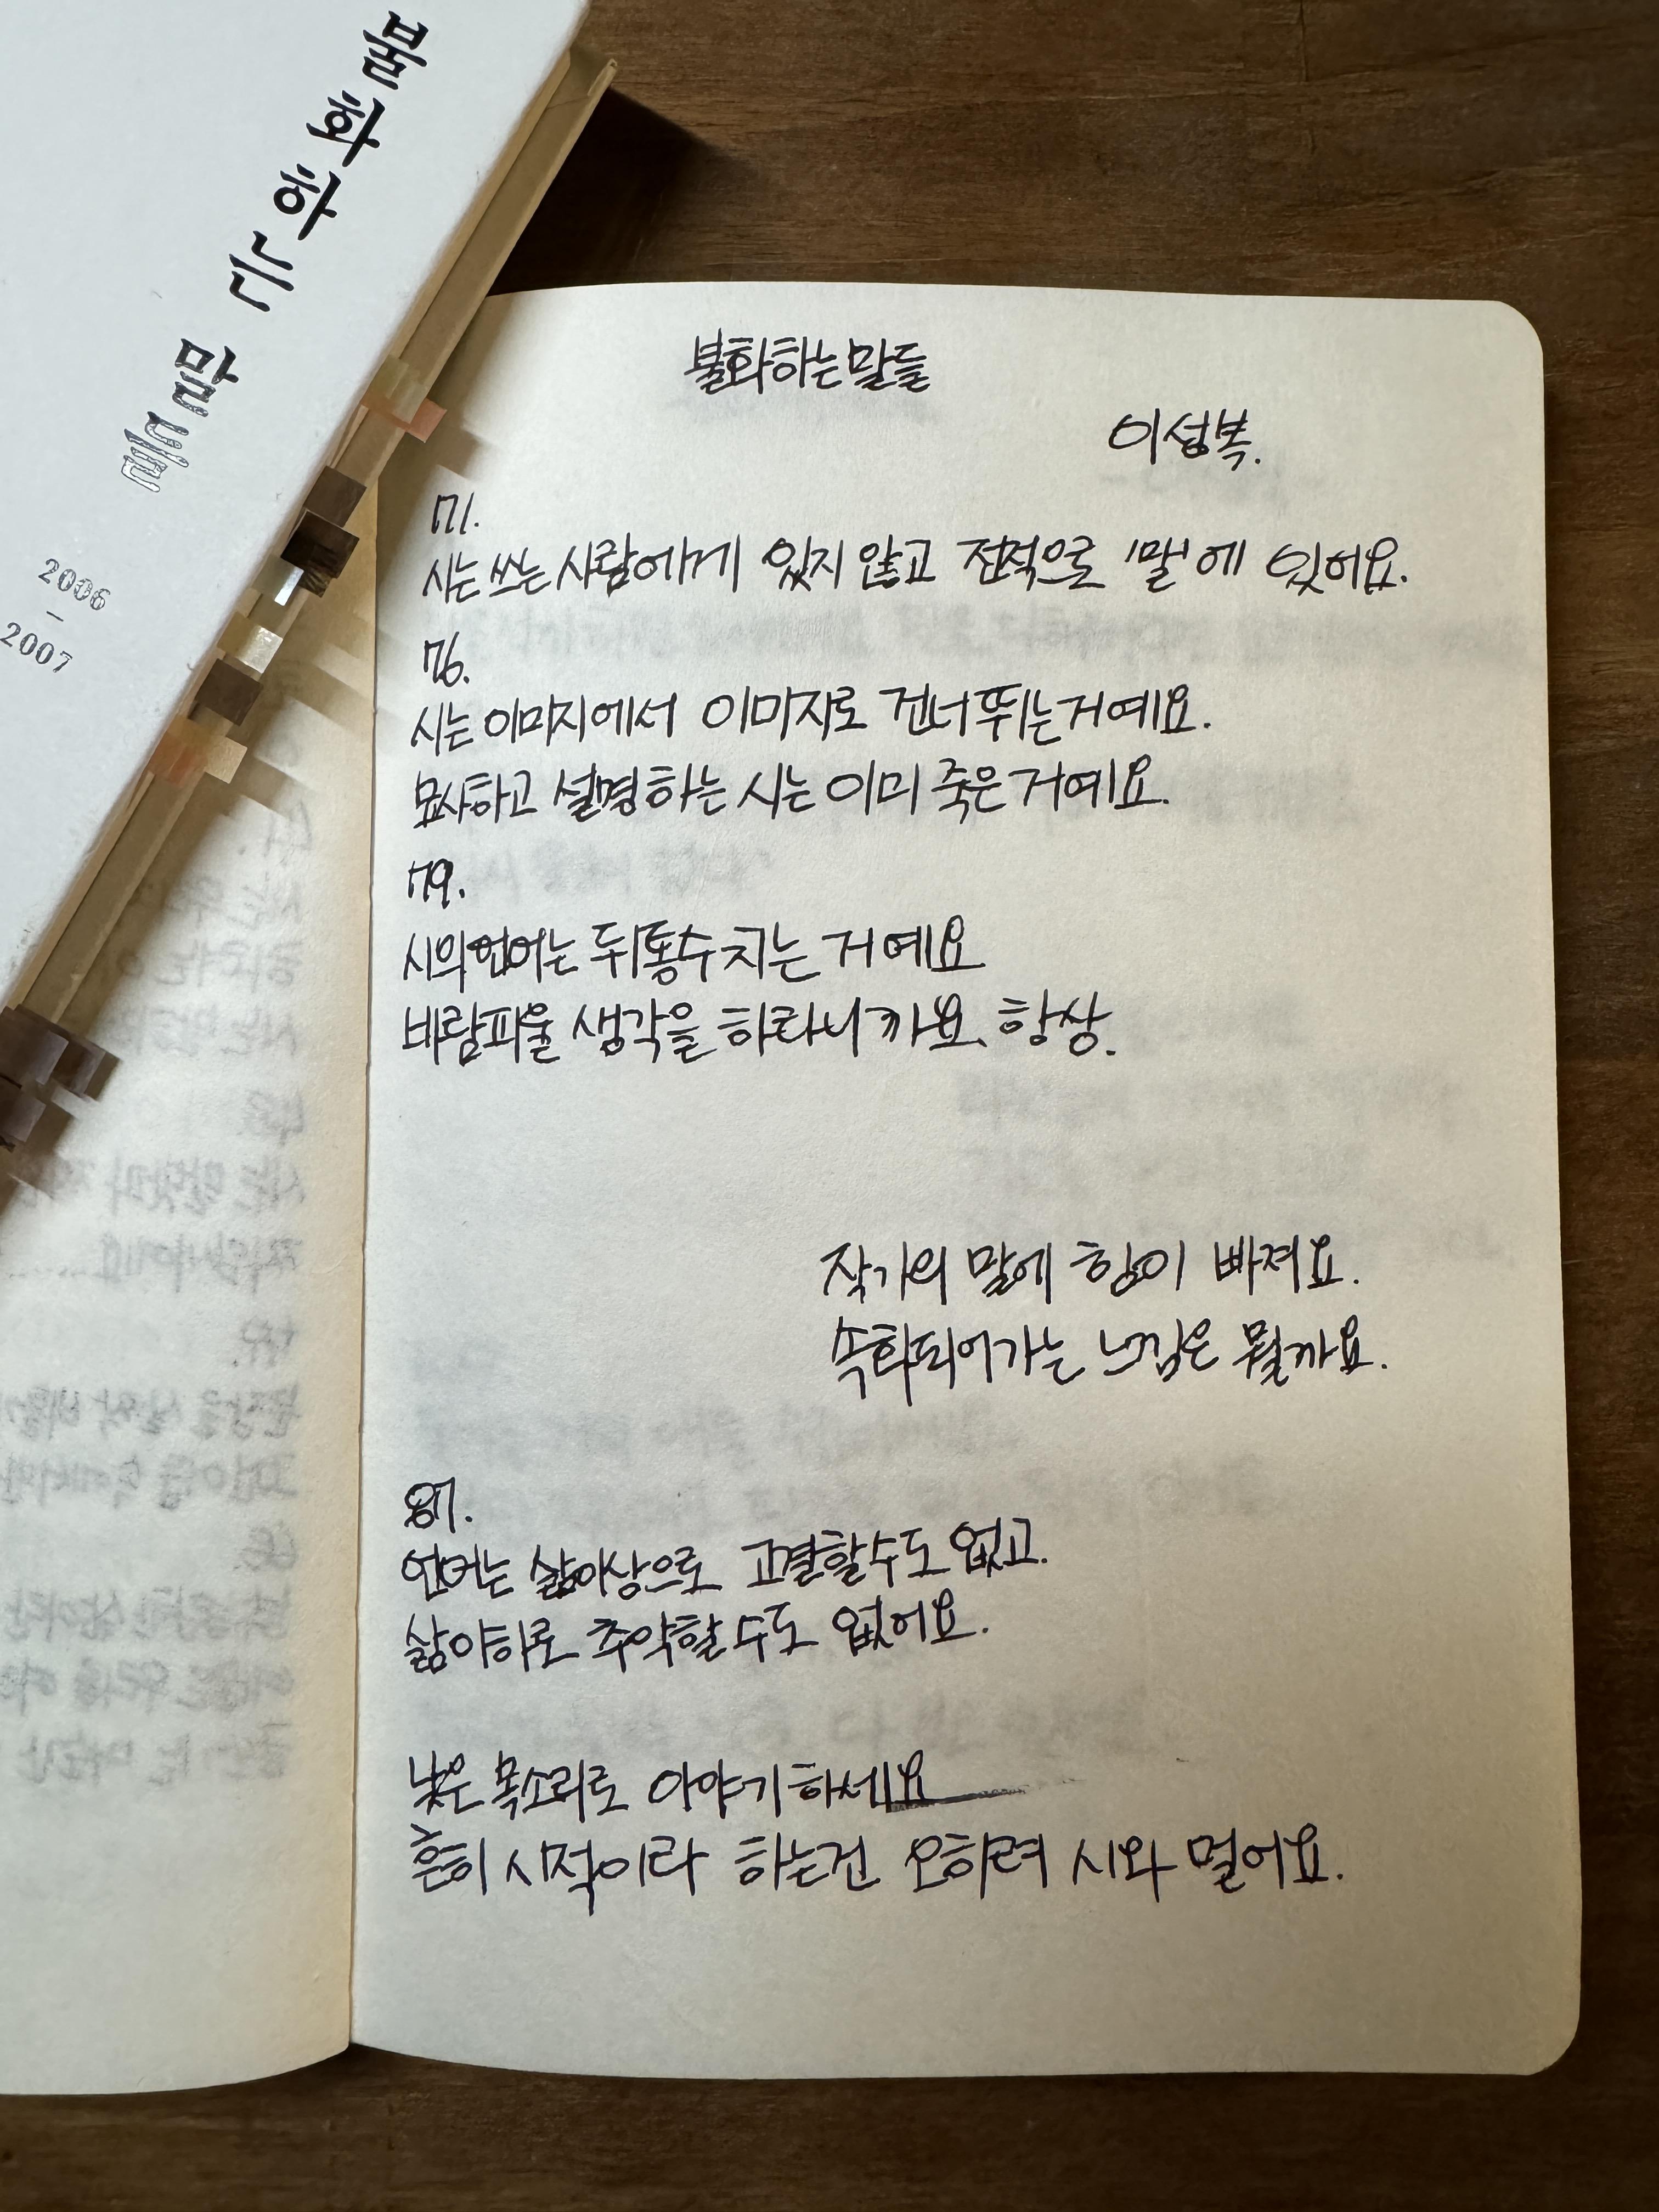 불화하는 말들
2006
–
2007
불화하는말들
이성복.
71.
시는 쓰는 사람에게 있지 않고 전적으로 '말'에 있어요.
76.
시는 이미지에서 이미지로 건너뛰는거예요.
묘사하고 설명하는 시는 이미 죽은거예요.
79.
시의 언어는 뒤통수치는 거예요
바람피울 생각을 하라니까요, 항상.
작가의 말에 힘이 빠져요.
속화되어가는 느낌은 뭘까요.
87.
언어는 삶이상으로 고결할수도 없고.
삶이하로 추악할 수도 없어요.
낮은 목소리로 이야기하세요
흔히 시적이라 하는건 오히려 시와 멀어요.